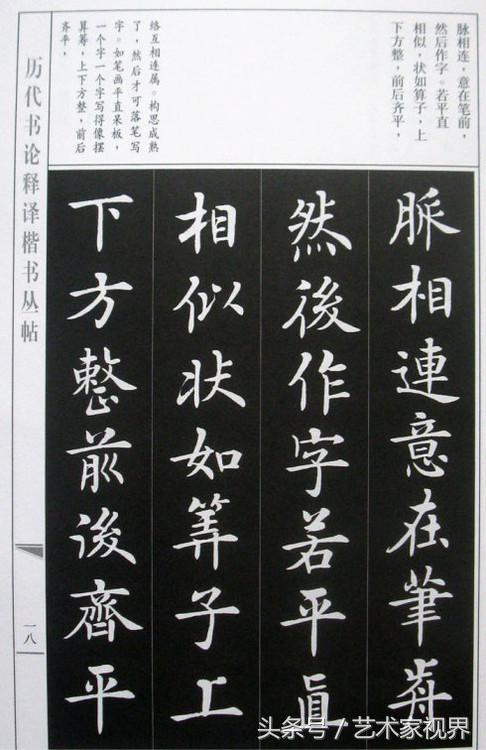 脉相连，意在笔前，
然后作字。若平直
相似，状如算子，上
下方整，前后齐平，
络互相连属。构思成熟
了，然后才可落笔写
字。如笔画平直呆板，
一个字一个字写得像摆
算筹，上下方整，前后
齐平，
脈相連意在筆歬
然後作字若平直
相似状如筭子上
下方整前後齊平
历代书论释译楷书丛帖
一八
头条号/艺术家视界